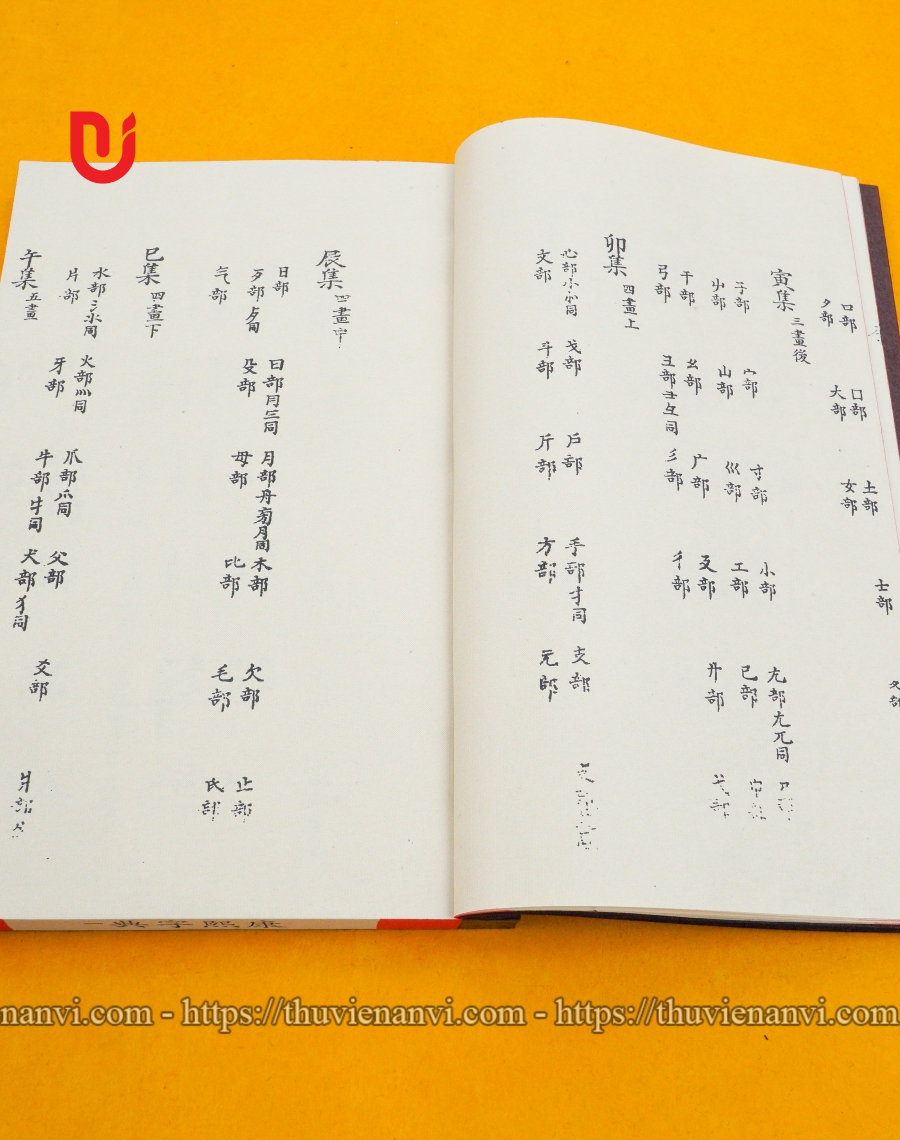 口部 囗部 土部 士部
夕部 大部 女部
寅集 三畫後
子部 宀部 寸部 小部 尢部尣兀同
屮部 山部 巛部 工部 己部 巾部
干部 幺部 广部 廴部 廾部 弋部
弓部 彐部彑同 彡部 彳部
卯集 四畫上
心部忄㣺同 戈部 戶部 手部扌同 支部
文部 斗部 斤部 方部 无部
辰集 四畫中
日部 曰部 月部 木部 欠部 止部
歹部歺同 殳部 毋部 比部 毛部 氏部
气部
巳集 四畫下
水部氵氺同 火部灬同 爪部爫同 父部 爻部 爿部
片部 牙部 牛部牜同 犬部犭同
午集 五畫
康熙字典 一
nanvi.com - https://thuvienanvi.com - https://thuvienanvi.com